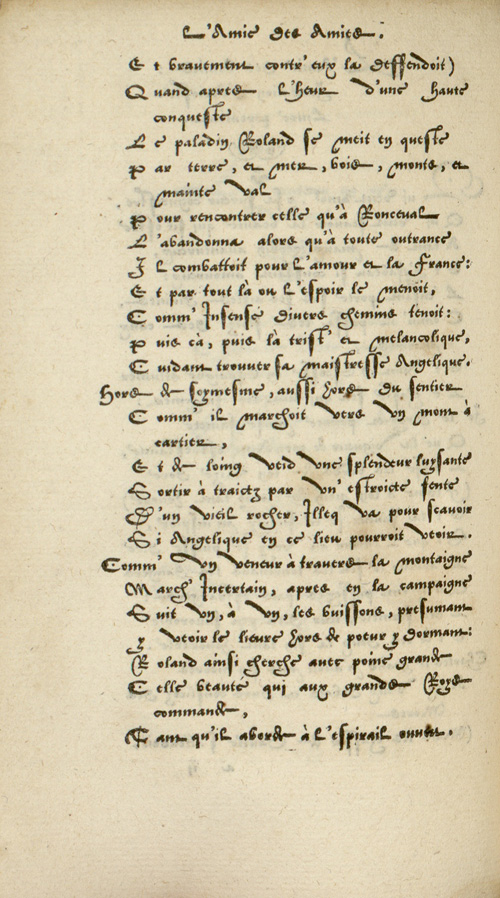 L'Amie des Amies.
Et bravement contr' eux la deffendoit)
Quand apres l'heur d'une haute
conqueste
Le paladin Roland se meit en queste
Par terre, et mer, bois, monts, et
mainte val
Pour rencontrer celle qu'à Ronceval
L'abandonna alors qu'à toute outrance
Il combattoit pour l'amour et la France:
Et par tout là ou l'espoir le menoit,
Comm' Insense divers chemins tenoit:
Puis cà, puis là trist' et melancolique,
Cuidant trouver sa maistresse Angelique.
Hors de soymesme, aussi hors du sentier
Comm' il marchoit vers vn mont à
cartier,
Et de loing veid vne splendeur luysante
Sortir à traictz par vn' estroicte fente
D'un vieil rocher, Illeq va pour scavoir
Si Angelique en ce lieu pourroit veoir.
Comm' vn veneur à travers la montaigne
March' Incertain, apres en la campaigne
Suit vn, à vn, les buissons, presumant
y veoir le lieure hors de poeur y dormant:
Roland ainsi cherche avec poine grande
Celle beaute qui aux grands Roys
commande,
Tant qu'il aborde à l'espirail ouvert.